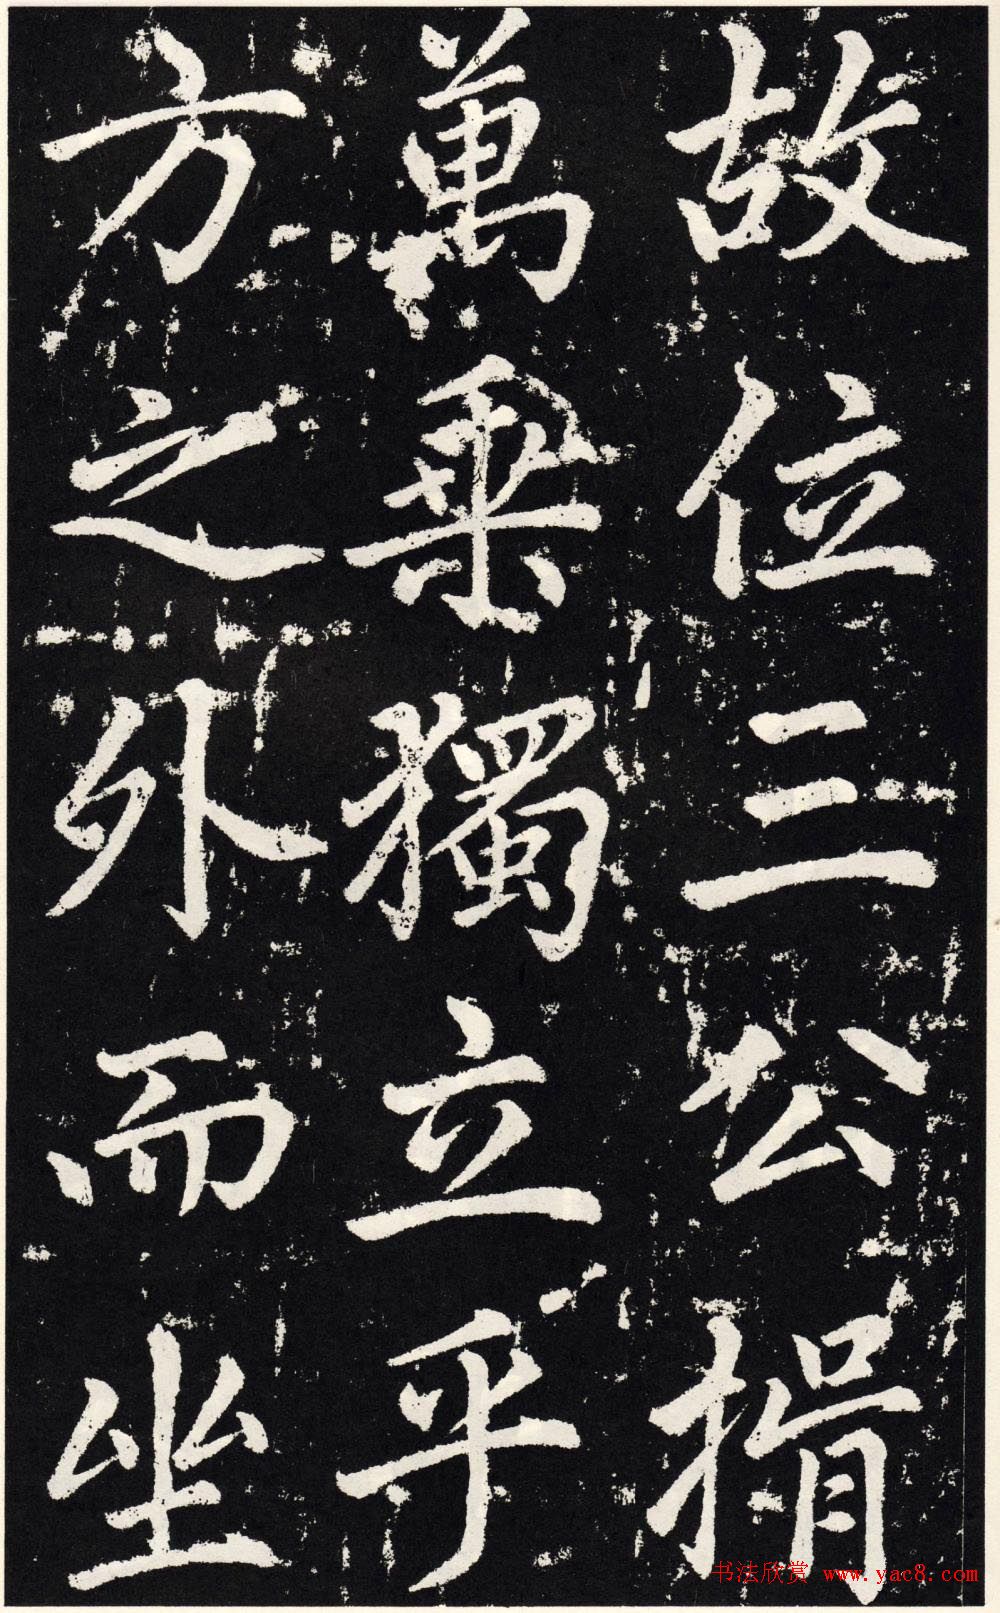 故位三公捐
萬乗獨立乎
方之外而坐
书法欣赏 www.yac8.com